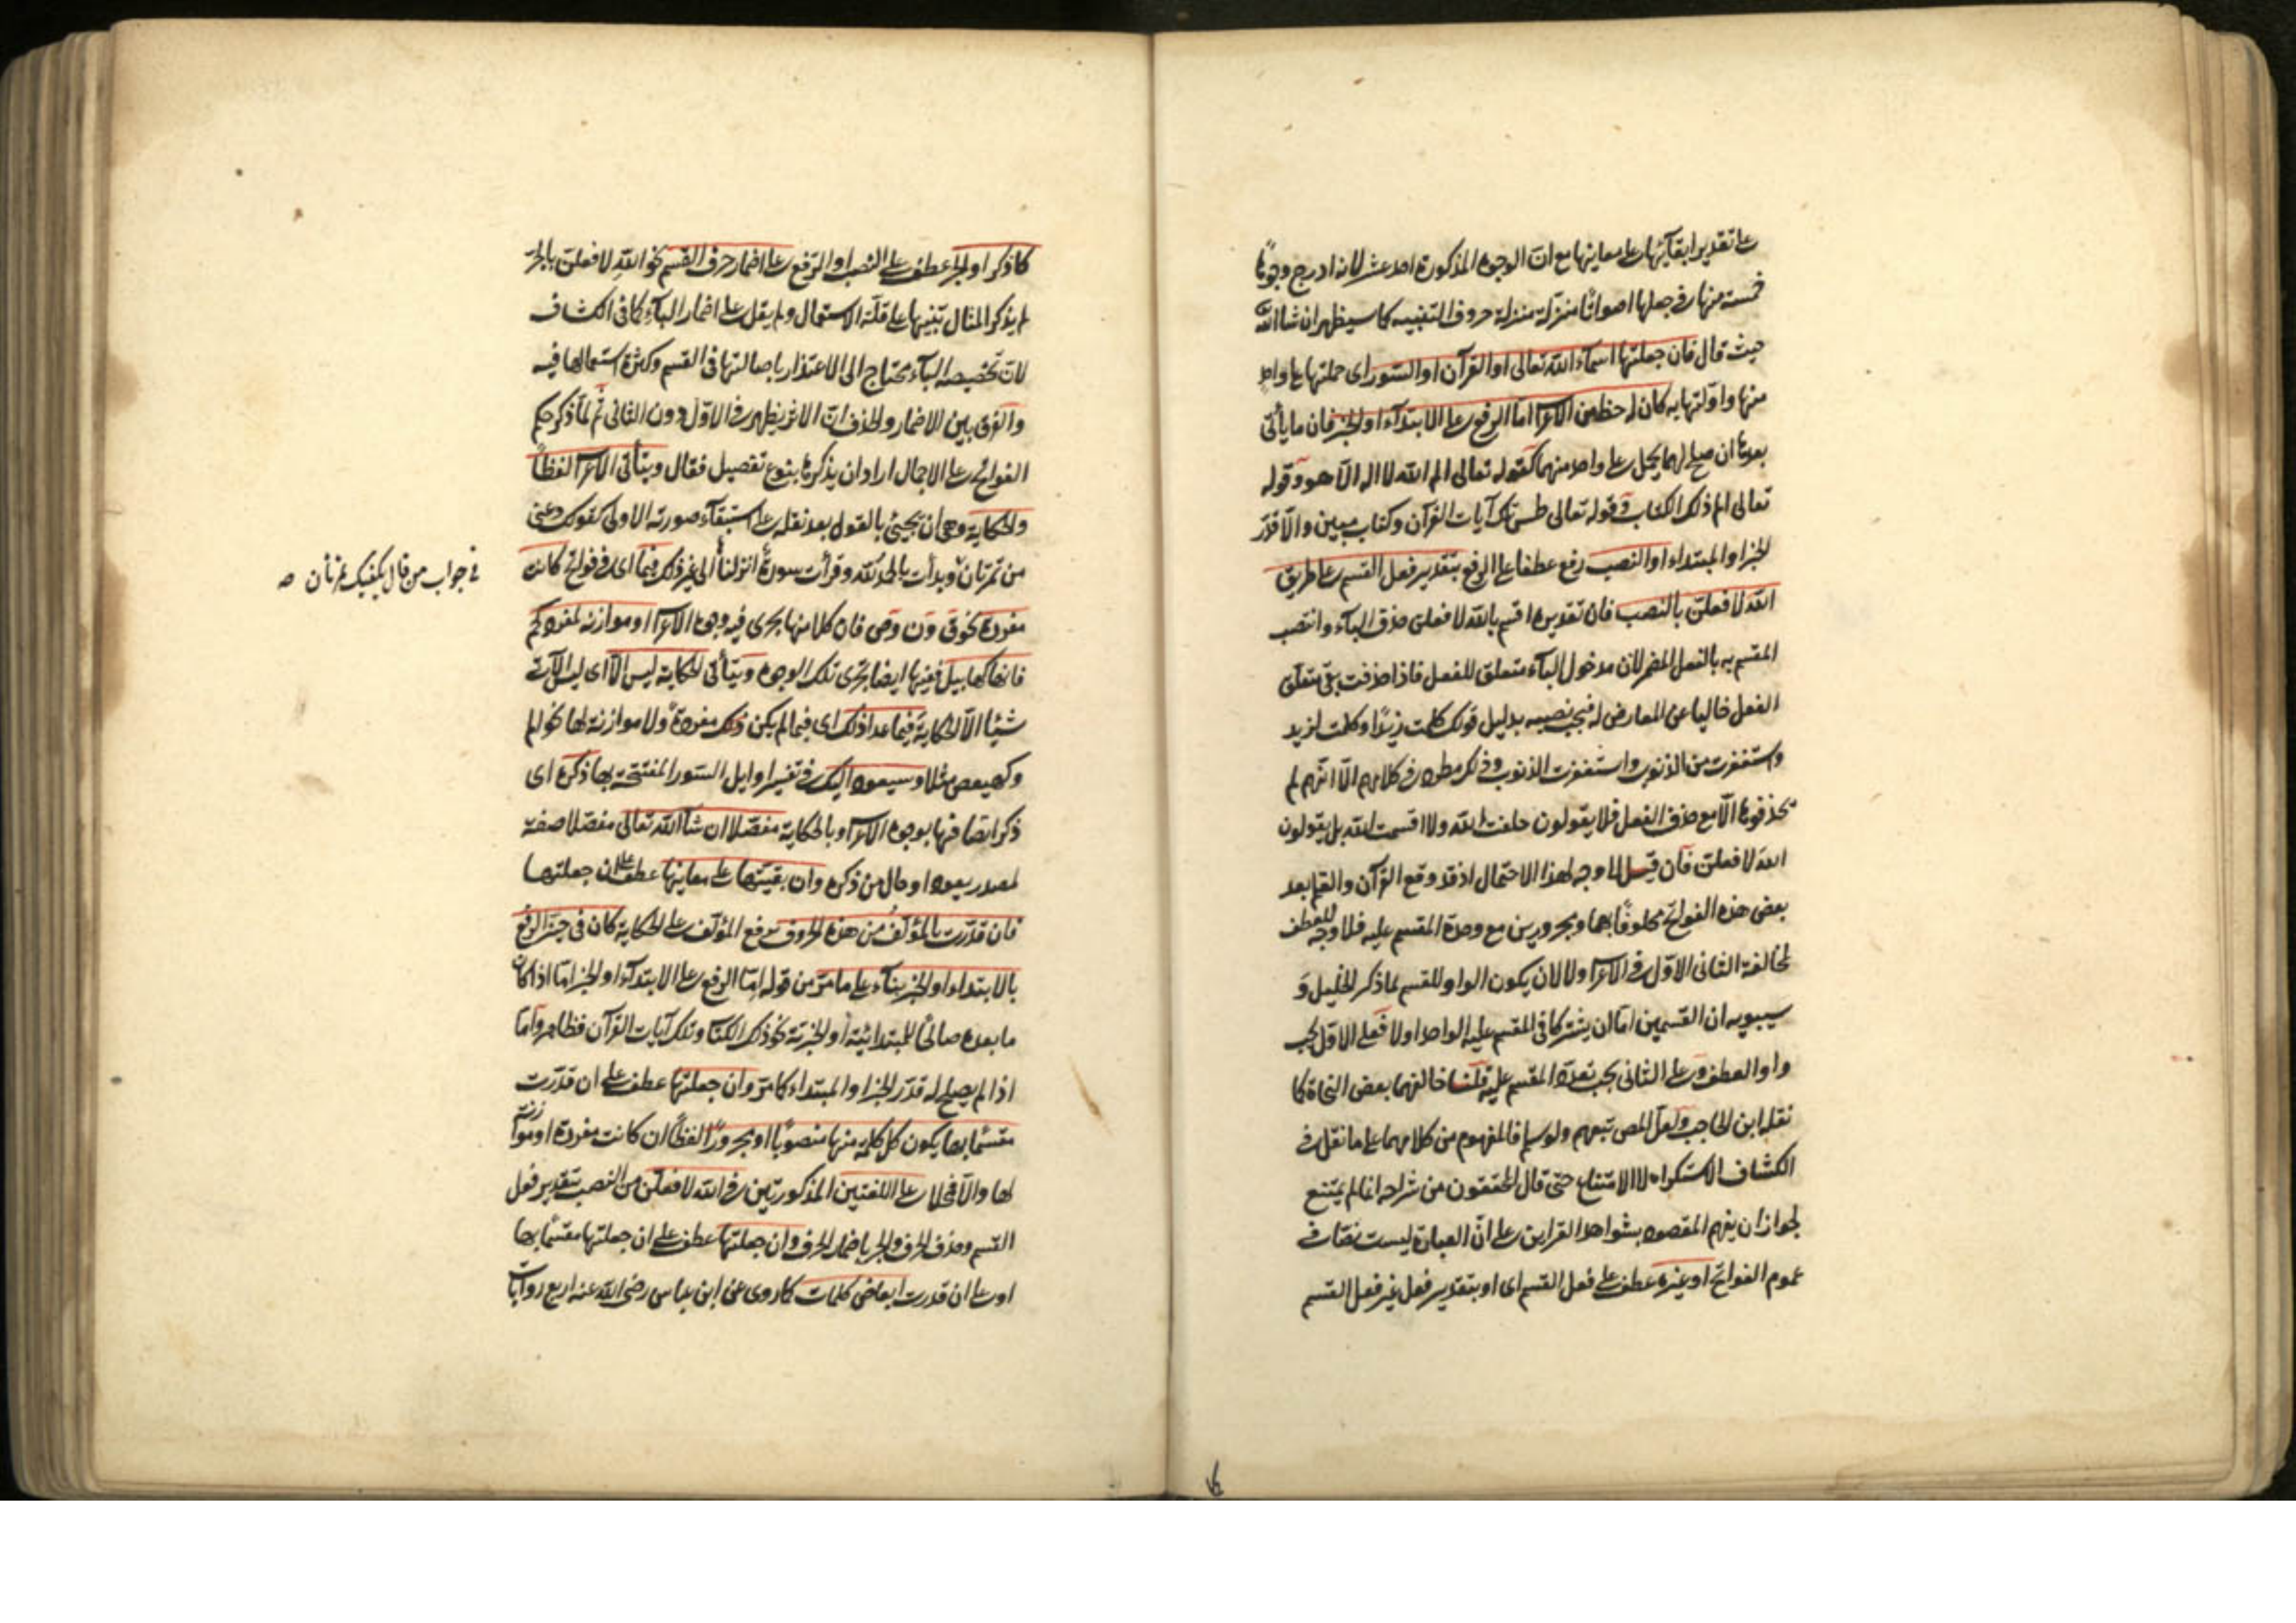 على تقدير ابقائها على معانيها مع ان الوجوه المذكورة احد عشر لانه ادرج وجوها
خمسة منها في جعلها اصواتا منزلة منزلة حروف التنبيه كما سيظهر ان شاء الله
حيث قال فان جعلتها اسماء الله تعالى او القرآن او السور اى حملتها على واحد
منها واولتها به كان له حظ من الاعرا اما الرفع على الابتداء او الخبر فان ما يأتى
بعدها ان صلح لهما يحمل على واحد منهما كقوله تعالى الم الله لا اله الا هو وقوله
تعالى الم ذلك الكتاب وقوله تعالى طس تلك آيات القرآن وكتاب مبين والا قدر
الخبر او المبتداء او النصب رفع عطفا على الرفع بتقدير فعل القسم على طريق
الله لافعلن بالنصب فان تقديره اقسم بالله لافعلن حذف الباء وانتصب
المقسم به بالفعل المضمر لان مدخول الباء متعلق للفعل فاذا حذفت بقى متعلق
الفعل خاليا عن المعارض له فيجب نصبه بدليل قولك كلت زيدا وكلت لزيد
واستغفرت من الذنوب واستغفرت الذنوب وذلك مطرد في كلامهم الا انهم لم
يحذفوها الا مع حذف الفعل فلا يقولون حلفت الله ولا اقسمت الله بل يقولون
الله لافعلن فان قيل لا وجه لهذا الاحتمال اذ قد وقع القرآن والقلم بعد
بعض هذه الفواتح محلوفا بهما ومجرورين مع وحدة المقسم عليه فلا وجه للعطف
لمخالفة الثانى الاول في الاعرا ولا لان يكون الواو للقسم لما ذكر الخليل و
سيبويه ان القسمين اما ان يشتركا في المقسم عليه الواحد اولا فعلى الاول يجب
واو العطف وعلى الثانى يجب تعدد المقسم عليه قلنا خالفهما بعض النحاة كما
نقله ابن الحاجب ولعل المص تبعهم ولو سلم فالمفهوم من كلامهما على ما نقل في
الكشاف الاستكراه لا الامتناع حتى قال المحققون من شراحه انما لم يمتنع
لجواز ان يفهم المقصود بشواهد القراين على ان العبارة ليست نصا في
عموم الفواتح او غيره عطف على فعل القسم اى او بتقدير فعل غير فعل القسم
كاذكر او الجر عطف على النصب او الرفع على اضمار حرف القسم نحو الله لافعلن بالجر
لم يذكر المثال تنبيها على قلة الاستعمال ولم يقل على اضمار الباء كما في الكشاف
لان تخصيصه الباء يحتاج الى الاعتذار باصالتها في القسم وكثرة استعمالها فيه
والفرق بين الاضمار والحذف ان الاثر يظهر في الاول دون الثانى ثم لما ذكر حكم
الفواتح على الاجمال اراد ان يذكرها بنوع تفصيل فقال ويتأتى الاعرا لفظا
والحكاية وهى ان تجيئ بالقول بعد نقله على استبقاء صورته الاولى كقولك دعنى
من تمرتان وبدأت بالحمد لله وقرأت سورة انزلناها الى غير ذلك فيما اى في فواتح كانت
في جواب من قال يكفيك تمرتان صه
مفردة نحو ق ون وص فان كلا منها يجرى فيه وجوه الاعرا او موازنة لمفرد كحم
فانها كهابيل ففيها ايضا يجرى تلك الوجوه ويتأتى الحكاية ليس الا اى ليس الآتى
شيئا الا الحكاية فيما عدا ذلك اى فيما لم يكن ذلك مفردة ولا موازنة لها نحو الم
وكهيعص مثلا وسيعود اليك في تفسير اوايل السور المفتتحة بها ذكره اى
ذكر اتصافها بوجوه الاعرا وبالحكاية مفصلا ان شاء الله تعالى مفصلا صفة
لمصدر يعود او حال من ذكره وان بقيتها على معانيها عطف على ان جعلتها
فان قدرت بالمؤلف من هذه الحروف برفع المؤلف على الحكاية كان في حيز الرفع
بالابتداء او الخبر بناء على ما مر من قوله اما الرفع على الابتداء او الخبر اما اذا كان
ما بعده صالحا للمبتدائية او الخبرية نحو ذلك الكتا وتلك آيات القرآن فظاهر واما
اذا لم يصلح له قدر الخبر او المبتداء كما مر وان جعلتها عطف على ان قدرت
مقسما بها يكون كل كلمة منها منصوبا او مجرورا لفظا ان كانت مفردة او موازنة
لها والا فمحلا على اللغتين المذكورتين في الله لافعلن من النصب بتقدير فعل
القسم وحذف الحرف والجر باضمار الحرف وان جعلتها عطف على ان جعلتها مقسما بها
او على ان قدرت ابعاض كلمات كما روى عن ابن عباس رضى الله عنه اربع روايات